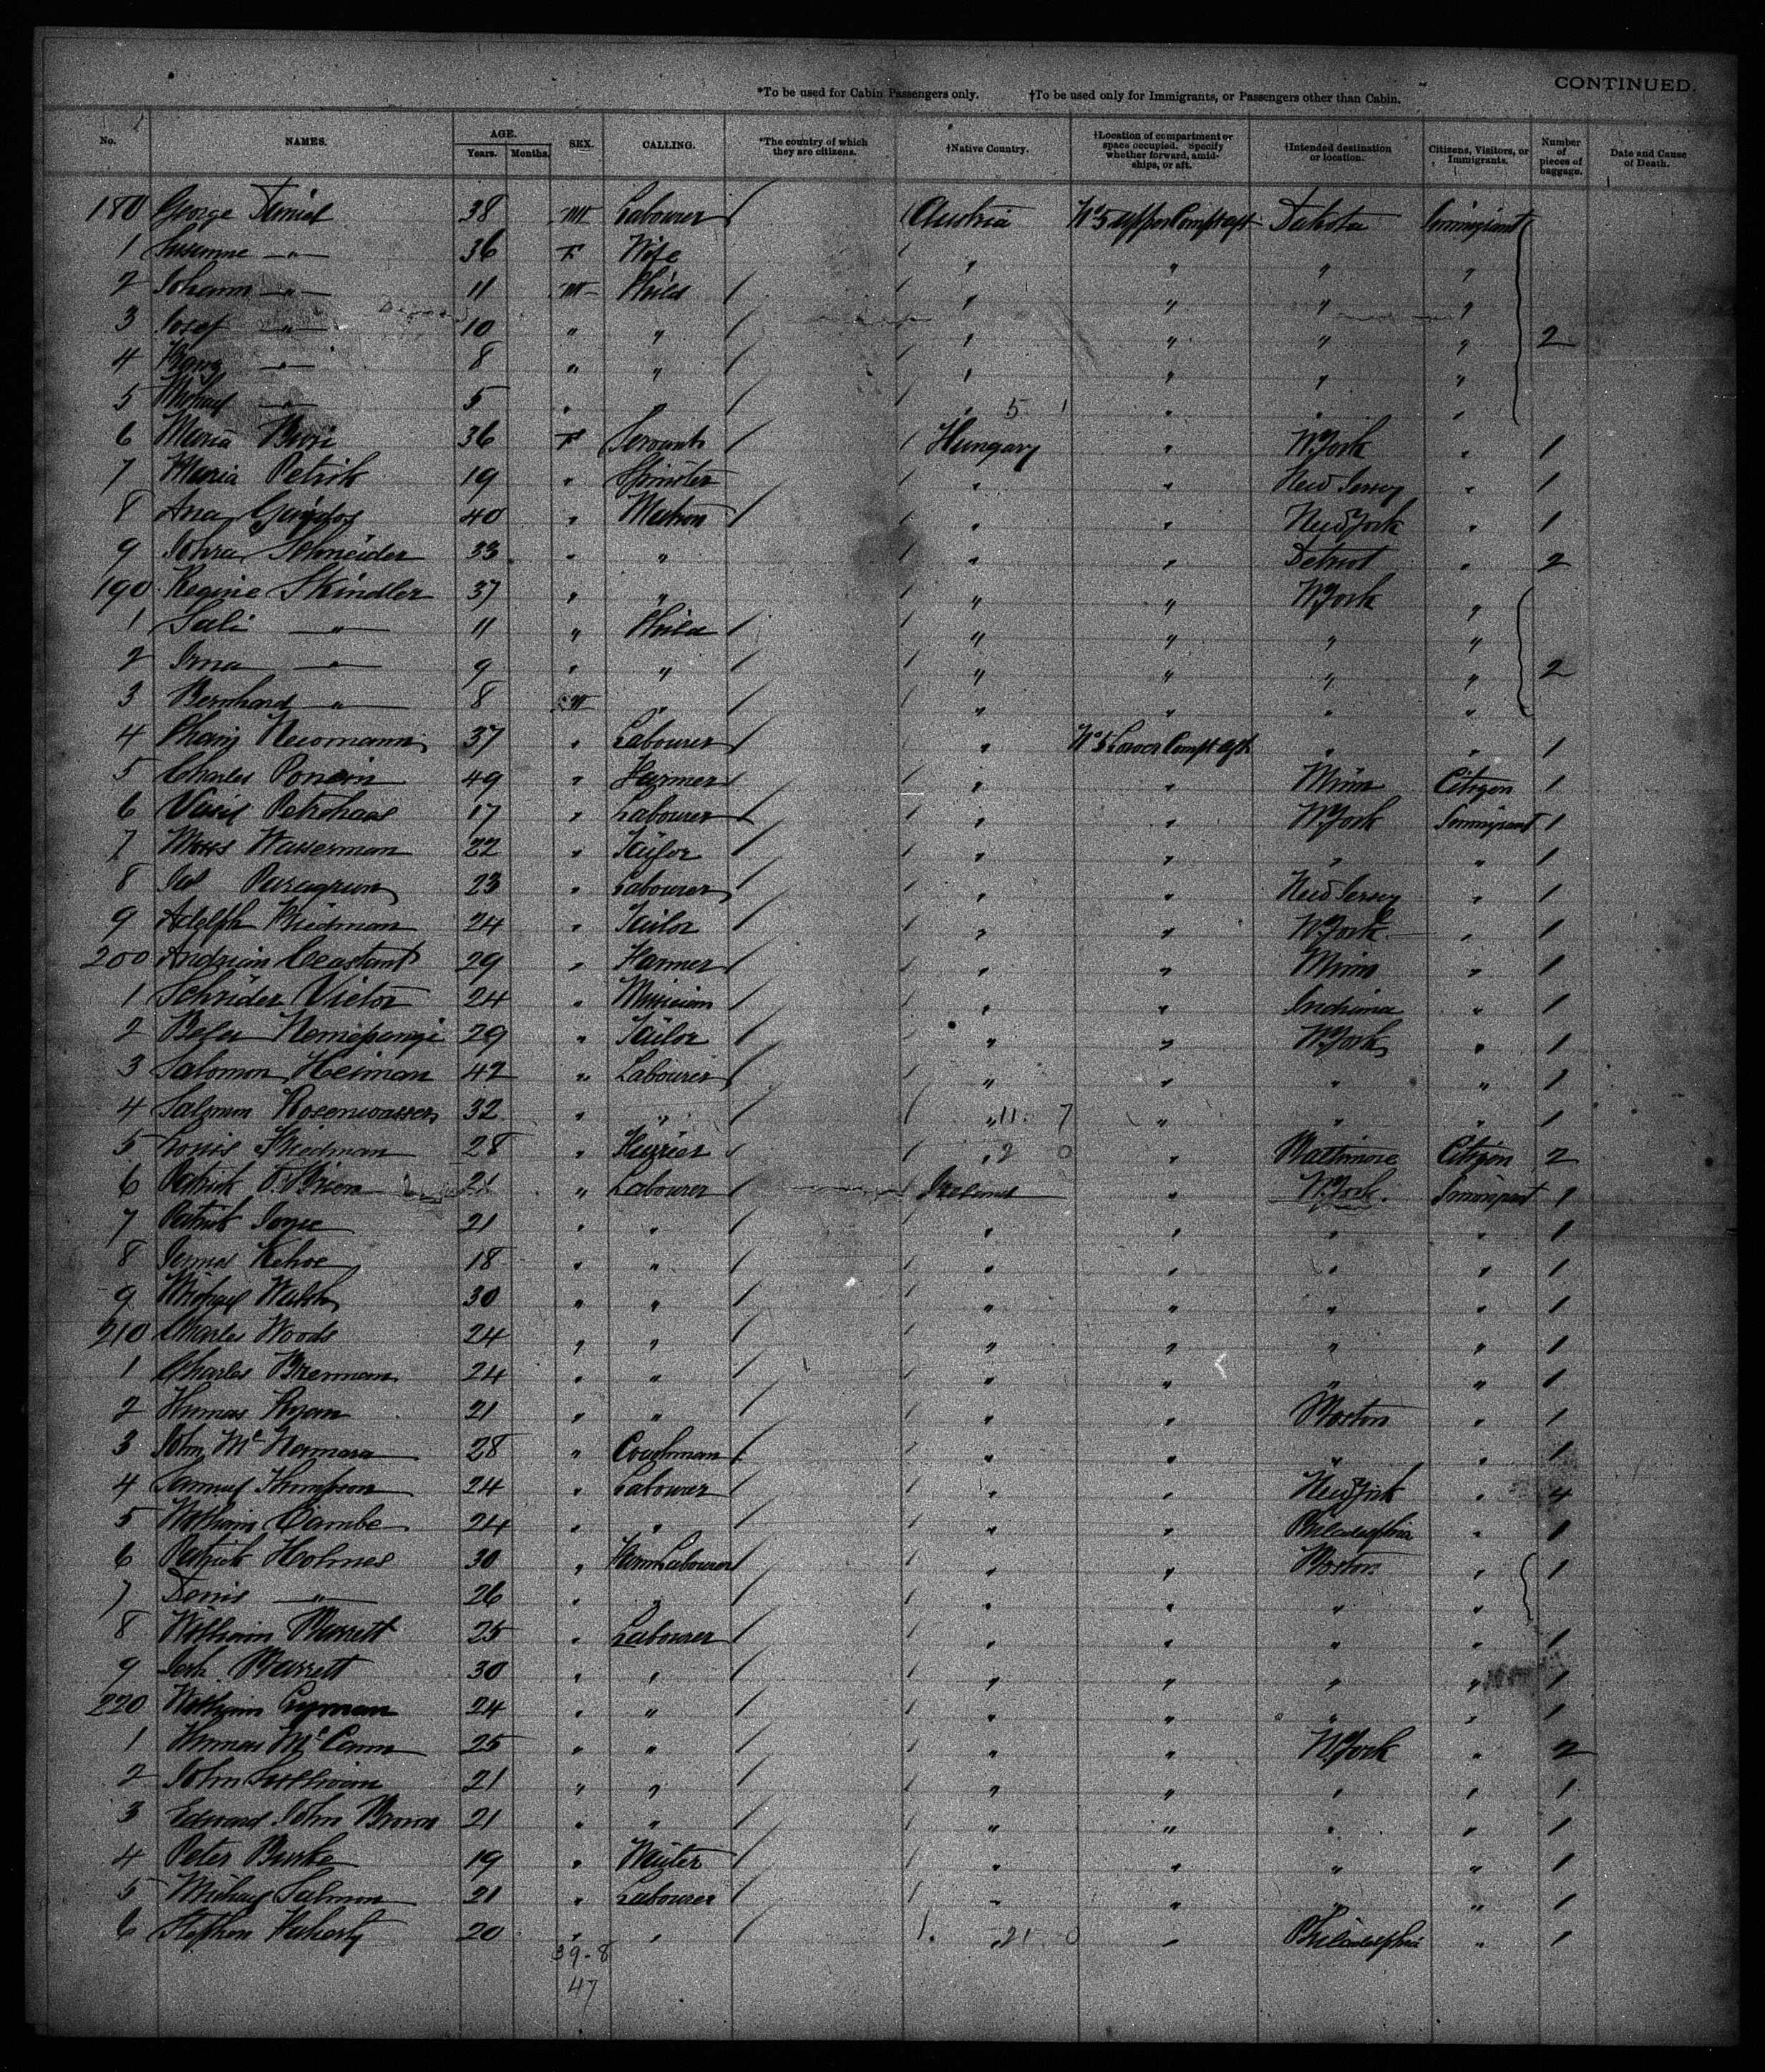 CONTINUED.
*To be used for Cabin Passengers only. †To be used only for Immigrants, or Passengers other than Cabin.
No. NAMES. AGE. Years. Months. SEX. CALLING. *The country of which they are citizens. †Native Country. †Location of compartment or space occupied. Specify whether forward, amidships, or aft. †Intended destination or location. Citizens, Visitors, or Immigrants. Number of pieces of baggage. Date and Cause of Death.
180 George 38 M Labourer / Austria Dakota Immigrant
1 Susanne —"— 36 F Wife " " " "
2 Johann —"— 11 M Child / " " " "
3 Josef —"— 10 " " / " " " " 2
4 —"— 8 " " / " " " "
5 Michael —"— 5 " " / " 5 1 " " "
6 Maria 36 F Servant / Hungary " N York " 1
7 Maria Petrik 19 " Spinster " " New Jersey " 1
8 Ana 40 " Matron / " " New York " 1
9 Schneider 33 " " " " Detroit " 2
190 Regine Skindler 37 " " " " N York "
1 Sali —"— 11 " Child / " " " "
2 Irma —"— 9 " " / " " " " 2
3 Bernhard —"— 8 M " / " " " "
4 Newmann 37 " Labourer / " No 5 Lower Compt aft " " 1
5 Charles 49 " Farmer / " " Minn Citizen 1
6 17 " Labourer / " " N York Immigrant 1
7 Wasserman 22 " Tailor / " " " " 1
8 23 " Labourer / " " New Jersey " 1
9 Adolph Friedman 24 " Tailor / " " N York " 1
200 29 " Farmer / " " Minn " 1
1 Schrider Victor 24 " Musician / " " Indiana " 1
2 Bela 29 " Tailor / " " N York " 1
3 Salomon Heiman 42 " Labourer / " " " " 1
4 Salomon Rosenwasser 32 " " / " 11 7 " " " 1
5 Louis Friedman 28 " Furrier / " 2 0 " Baltimore Citizen 2
6 Patrick O'Brien 21 " Labourer / Ireland " N York Immigrant 1
7 Patrick Joyce 21 " " / " " " " 1
8 James Kehoe 18 " " / " " " " 1
9 Michael Walsh 30 " " / " " " " 1
210 Charles Woods 24 " " / " " " " 1
1 Charles Brennan 24 " " / " " " " 1
2 Thomas Ryan 21 " " / " " Boston " 1
3 John McNamara 28 " Coachman / " " " " 1
4 Samuel Thompson 24 " Labourer / " " New York " 4
5 William 24 " " / " " Philadelphia " 1
6 Patrick Holmes 30 " Farm Labourer / " " Boston " 1
7 Denis —"— 26 " " / " " " "
8 William Barrett 25 " Labourer / " " " " 1
9 Barrett 30 " " / " " " " 1
220 William 24 " " / " " " " 1
1 Thomas McCann 25 " " / " " N York " 2
2 John Sullivan 21 " " / " " " " 1
3 Edward John Brown 21 " " / " " " " 1
4 Peter Burke 19 " Waiter / " " " " 1
5 Michael Salmon 21 " Labourer / " " " " 1
6 Stephen 20 " " / " 21 0 " Philadelphia " 1
39-8
47